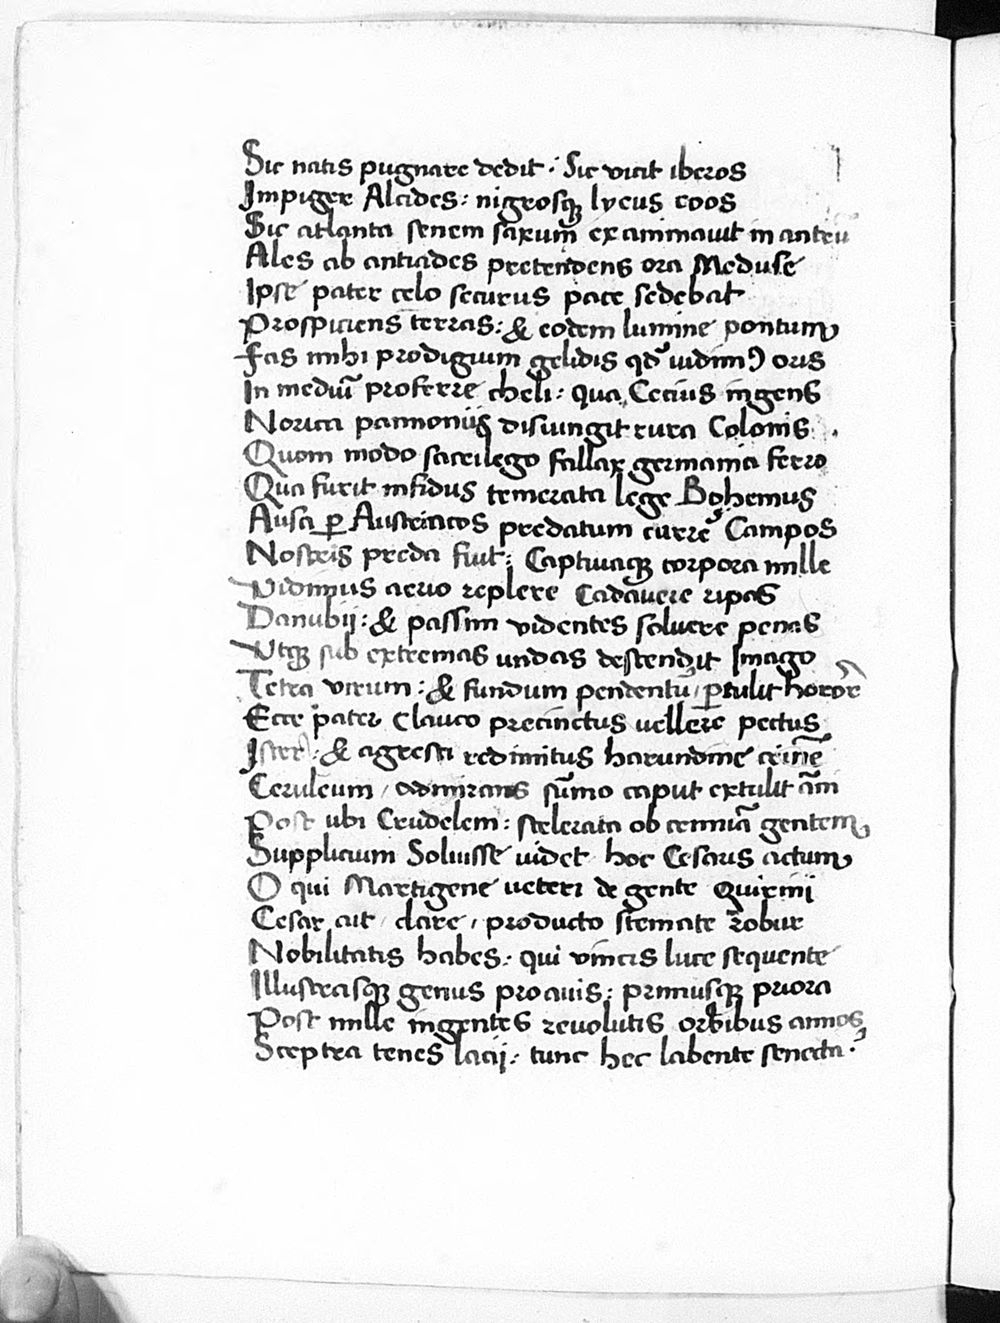 Sic natis pugnare dedit · Sic vicit iberos
Impiger Alcides : nigrosqꝫ lycus eoos
Sic atlanta senem saxum̄ exanimauit in anteū
Ales ab antiades pretendens ora Meduse
Ipse pater celo securus pace sedebat
Prospiciens terras : & eodem lumine pontum
Fas mihi prodigium gelidis qd̄ uidimꝰ oris
In mediū proferre cheli : qua Cecius ingens
Norica pannoniis disiungit rura Colonis .
Quom modo sacrilego fallax germania ferro
Qua furit infidus temerata lege Bohemus
Ausa ꝑ Austriacos predatum currē Campos
Nostris preda fuit : Captiuaqꝫ corpora mille
Vidimus aerio replere Cadauere ripas
Danubij : & passim videntes soluere penas
Vtqꝫ sub extremas undas descendit Imago
Tetra virum : & fundum pendentū ꝑtulit horrorē
Ecce pater Glauco precinctus uellere pectus
Ister : & agresti redimitus harundine crinē
Ceruleum / admirans sūmo caput extulit ām̄
Post ubi Crudelem : scelerata ob crimiā gentem
Supplicium Soluisse uidet hoc Cesaris actum
O qui Martigene ueteri de gente Quirini
Cesar ait / clare / producto stemate robur
Nobilitatis habes : qui vincis luce sequente
Illustrasqꝫ genus proauis : primusqꝫ priora
Post mille ingentes reuolutis orbibus annos
Sceptra tenes lacij : tunc hec labente senecta ·